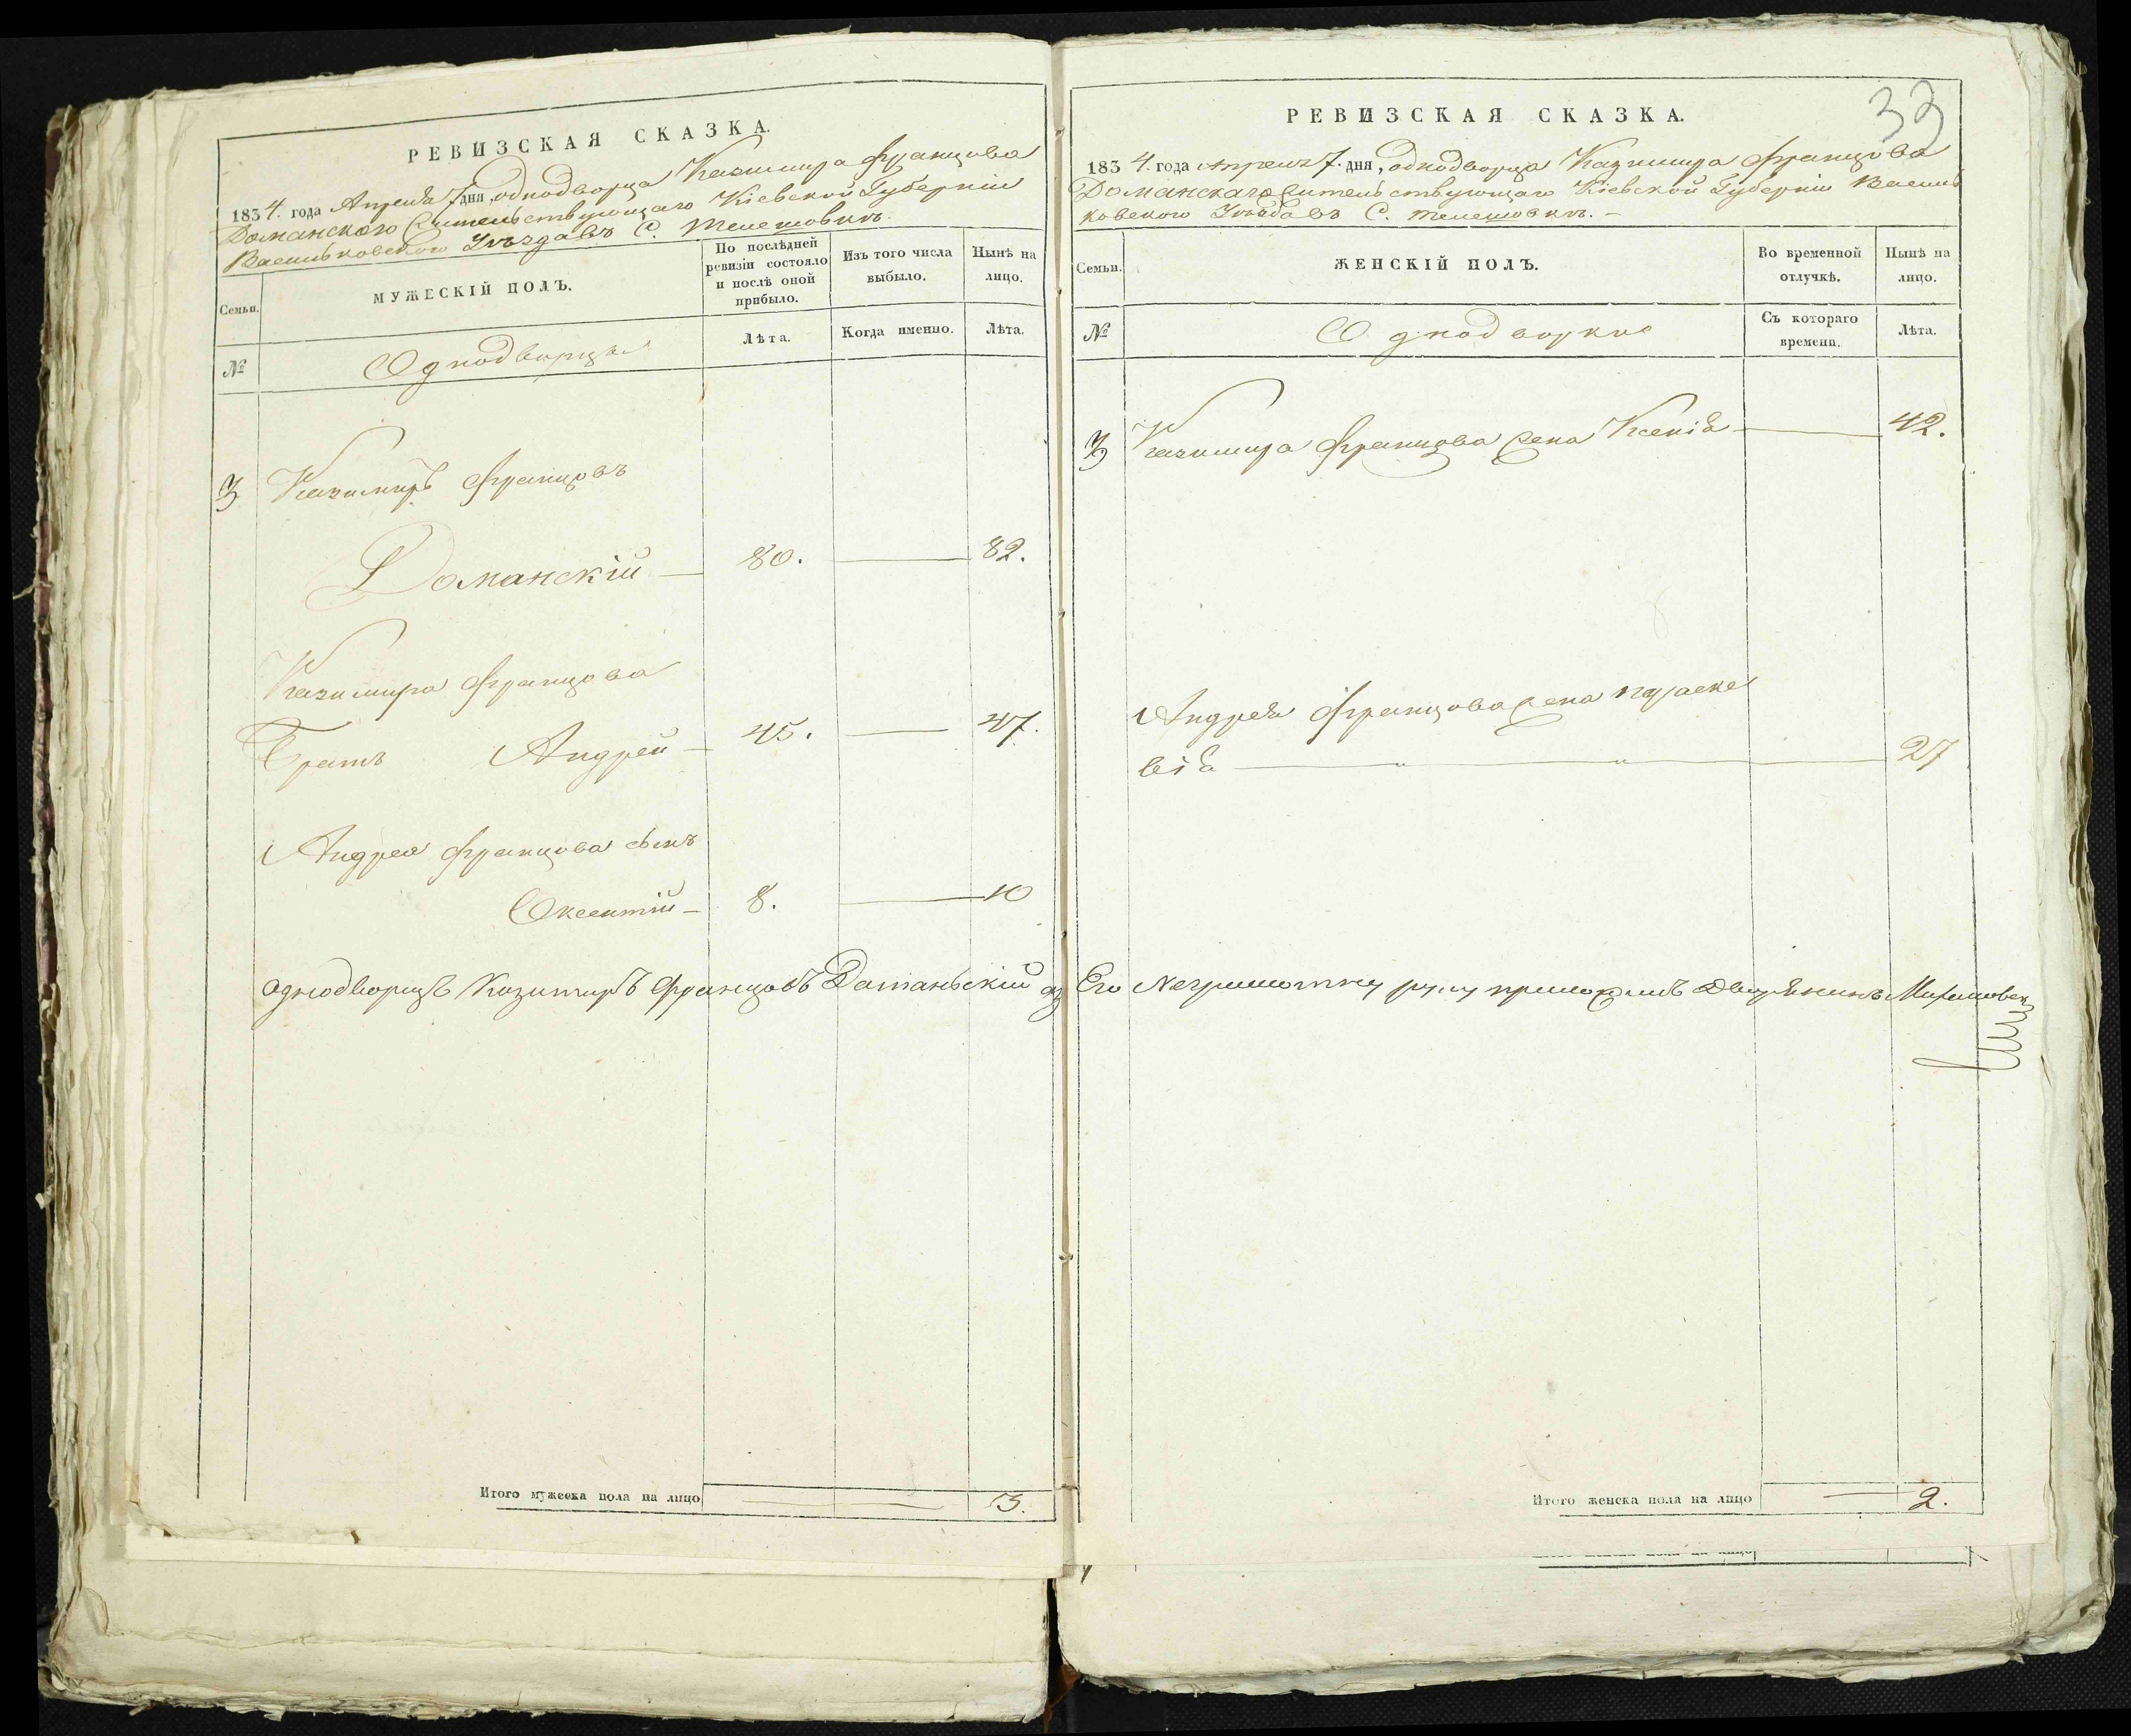 РЕВИЗСКАЯ СКАЗКА.
1834. года Апреля 7 дня, однодворца Казимира Францова
Доманского Жительствующаго Кіевской Губерніи
Васильковского Уѣзда въ С. Телешовкѣ.
Семьи.
МУЖЕСКІЙ ПОЛЪ.
По послѣдней ревизіи состояло и послѣ оной прибыло.
Изъ того числа выбыло.
Нынѣ на лицо.
№
Однодворцы
Лѣта.
Когда именно.
Лѣта.
3 Казимиръ Францовъ
Доманскій — 80. — 82.
Казимира Францова
Братъ Андрей — 45. — 47.
Андрея Францова сынъ
Оксентій — 8. — 10
однодворецъ Казимиръ Францовъ Доманьскій а
Итого мужеска пола на лицо — — 3.
33
РЕВИЗСКАЯ СКАЗКА.
1834. года Апреля 7. дня, однодворца Казимира Францова
Доманскаго Жительствующаго Кіевской Губерніи Василь
ковского Уѣзда въ С. Телешовкѣ. —
Семьи.
ЖЕНСКІЙ ПОЛЪ.
Во временной отлучкѣ.
Нынѣ на лицо.
№
Однодворки
Съ котораго времени.
Лѣта.
3 Казимира Францова жена Ксенія — 42.
Андрея Францова жена Параске
вія — " — " — 27
Его неграмотну руку приложилъ Дворянинъ
Итого женска пола на лицо — 2.